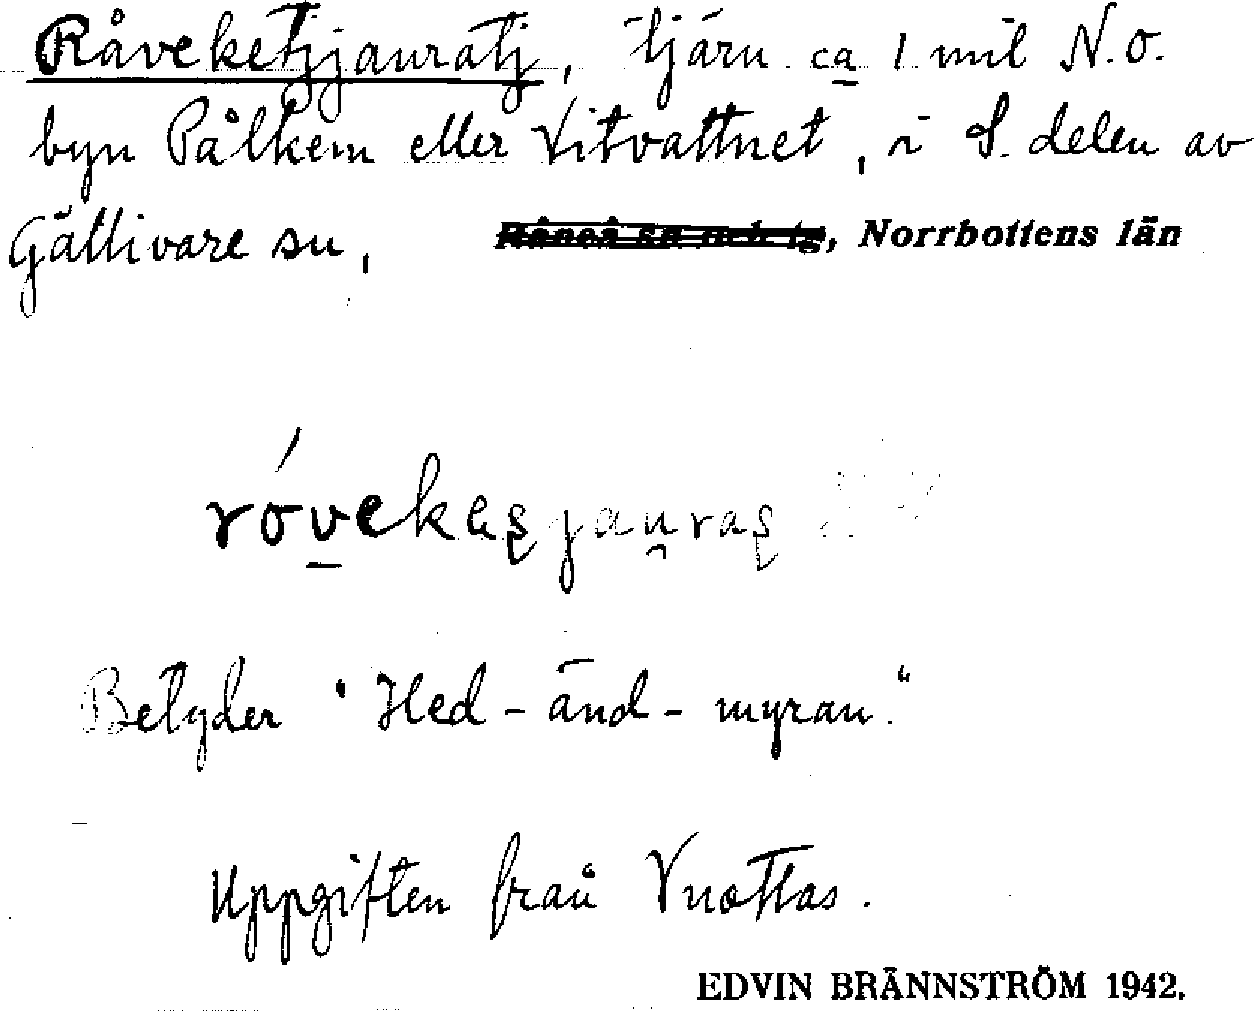 Råveketjjauratj, tjärn ca 1 mil N.O.
byn Pålkem eller Vitvattnet, i S. delen av
Gällivare sn, Råneå sn och tg, Norrbottens län
róvekaşjau̯raş
Betyder "Hed-änd-myran."
Uppgiften från Vuottas.
EDVIN BRÄNNSTRÖM 1942.